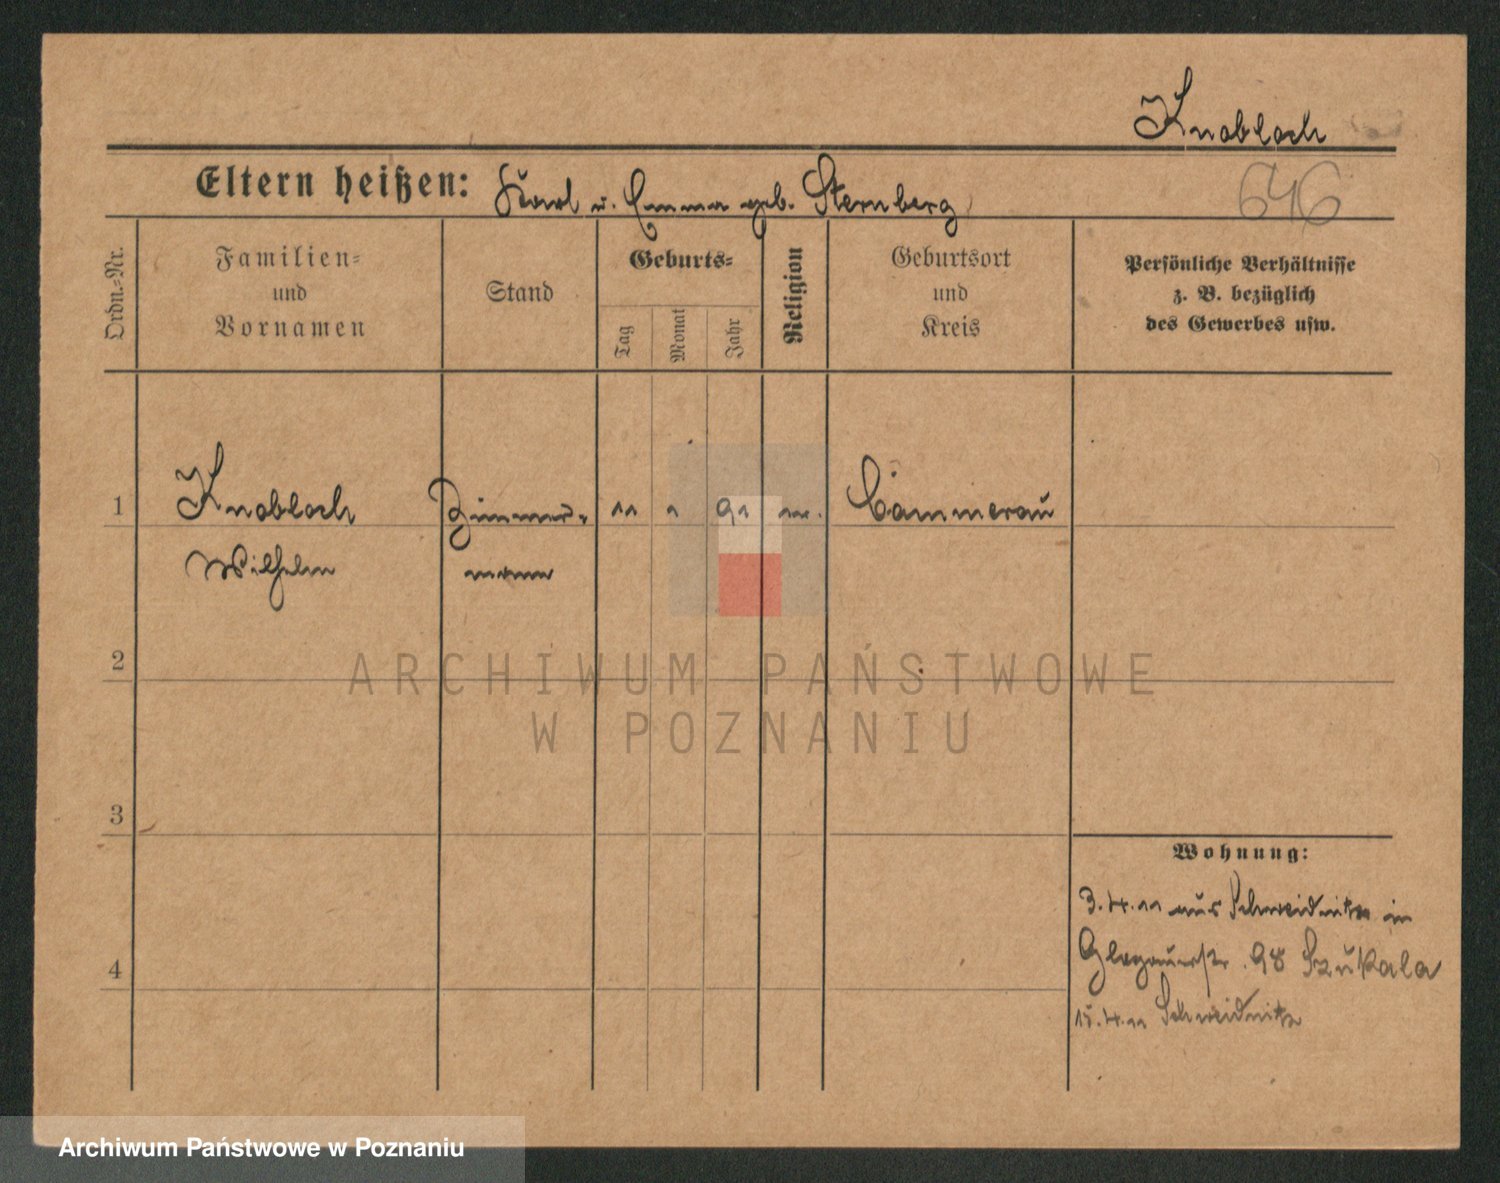 Knobloch
Eltern heißen: Karl u. Emma geb. Sternberg
646
Ordn.-Nr.
Familien-
und
Vornamen
Stand
Geburts-
Tag
Monat
Jahr
Religion
Geburtsort
und
Kreis
Persönliche Verhältnisse
z. B. bezüglich
des Gewerbes usw.
1 Knobloch Zimmer- 11 1 91 Cammerau
Wilhelm mann
2
ARCHIWUM PAŃSTWOWE
W POZNANIU
3
Wohnung:
3.4.11 aus Schweidnitz in
Glogauerstr. 98 Szukala
4
15.4.11 Schweidnitz
Archiwum Państwowe w Poznaniu